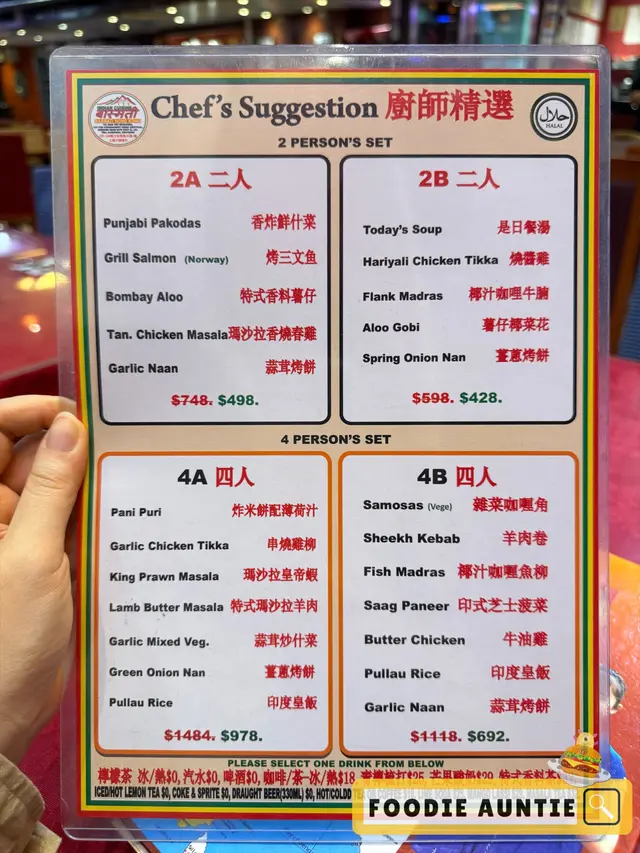 Chef's Suggestion 廚師精選
حلال
HALAL
2 PERSON'S SET
2A 二人
Punjabi Pakodas 香炸鮮什菜
Grill Salmon (Norway) 烤三文鱼
Bombay Aloo 特式香料薯仔
Tan. Chicken Masala 瑪沙拉香燒春雞
Garlic Naan 蒜茸烤餅
$748. $498.
2B 二人
Today's Soup 是日餐湯
Hariyali Chicken Tikka 燒醬雞
Flank Madras 椰汁咖哩牛腩
Aloo Gobi 薯仔椰菜花
Spring Onion Nan 薑蔥烤餅
$598. $428.
4 PERSON'S SET
4A 四人
Pani Puri 炸米餅配薄荷汁
Garlic Chicken Tikka 串燒雞柳
King Prawn Masala 瑪沙拉皇帝蝦
Lamb Butter Masala 特式瑪沙拉羊肉
Garlic Mixed Veg. 蒜茸炒什菜
Green Onion Nan 薑蔥烤餅
Pullau Rice 印度皇飯
$1484. $978.
4B 四人
Samosas (Vege) 雜菜咖喱角
Sheekh Kebab 羊肉卷
Fish Madras 椰汁咖喱魚柳
Saag Paneer 印式芝士菠菜
Butter Chicken 牛油雞
Pullau Rice 印度皇飯
Garlic Naan 蒜茸烤餅
$1118. $692.
PLEASE SELECT ONE DRINK FROM BELOW
檸檬茶 冰/熱$0, 汽水$0, 啤酒$0, 咖啡/茶-冰/熱$18
ICED/HOT LEMON TEA $0, COKE & SPRITE $0, DRAUGHT BEER(330ML) $0, HOT/COLDD
FOODIE AUNTIE